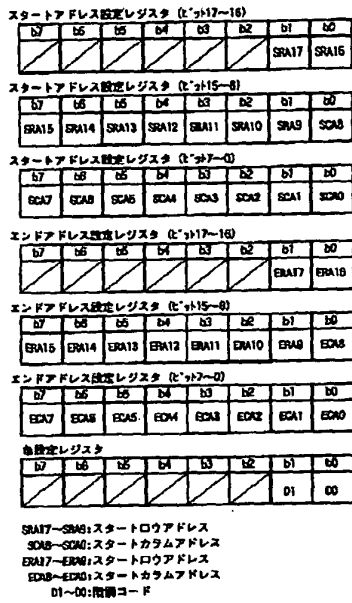 スタートアドレス設定レジスタ (ビット17~16)
b7 b6 b5 b4 b3 b2 b1 b0
SRA17 SRA16
スタートアドレス設定レジスタ (ビット15~8)
b7 b6 b5 b4 b3 b2 b1 b0
SRA15 SRA14 SRA13 SRA12 SRA11 SRA10 SRA9 SCA8
スタートアドレス設定レジスタ (ビット7~0)
b7 b6 b5 b4 b3 b2 b1 b0
SCA7 SCA6 SCA5 SCA4 SCA3 SCA2 SCA1 SCA0
エンドアドレス設定レジスタ (ビット17~16)
b7 b6 b5 b4 b3 b2 b1 b0
ERA17 ERA16
エンドアドレス設定レジスタ (ビット15~8)
b7 b6 b5 b4 b3 b2 b1 b0
ERA15 ERA14 ERA13 ERA12 ERA11 ERA10 ERA9 ECA8
エンドアドレス設定レジスタ (ビット7~0)
b7 b6 b5 b4 b3 b2 b1 b0
ECA7 ECA6 ECA5 ECA4 ECA3 ECA2 ECA1 ECA0
色設定レジスタ
b7 b6 b5 b4 b3 b2 b1 b0
D1 D0
SRA17~SRA9:スタートロウアドレス
SCA8~SCA0:スタートカラムアドレス
ERA17~ERA9:スタートロウアドレス
ECA8~ECA0:スタートカラムアドレス
D1~D0:階調コード